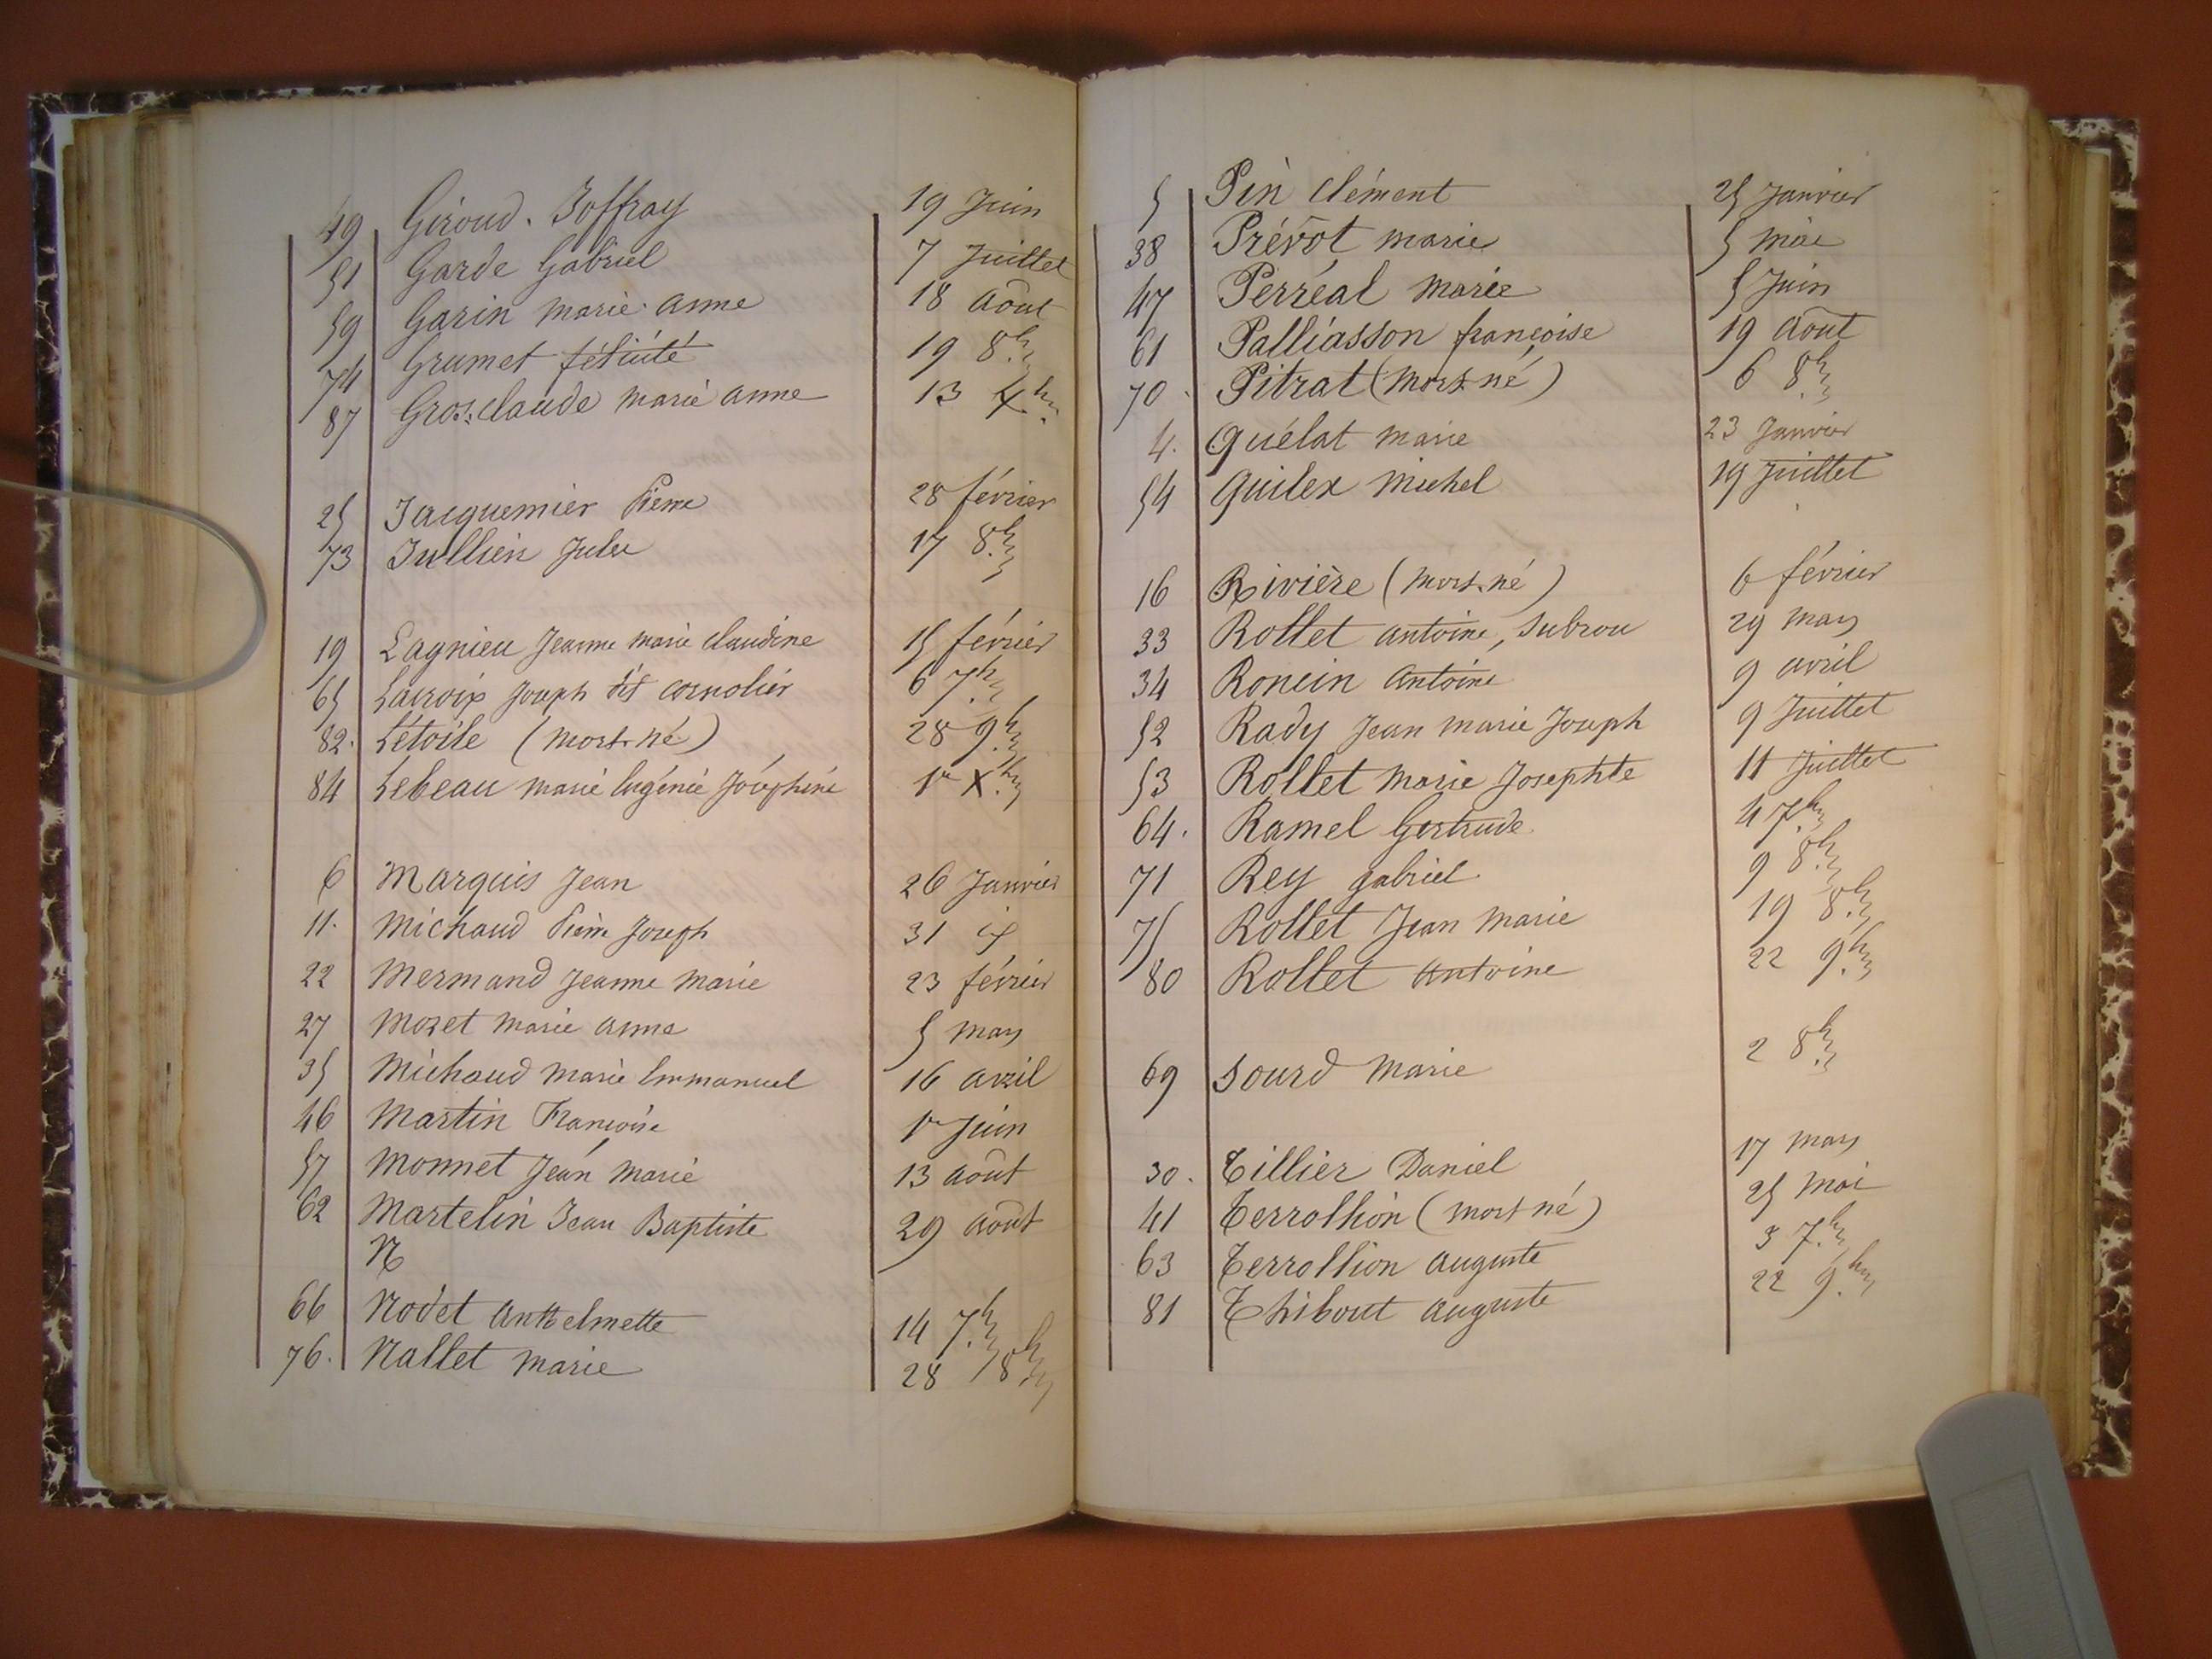 49 Giroud. Joffray 19 Juin
51 Garde Gabriel 7 Juillet
59 Garin marie anne 18 août
74 Grumet félicité 19 8.bre
87 Gros:claude marie anne 13 X.bre
25 Jacquemier Pierre 28 février
73 Jullien Jules 17 8.bre
19 Lagnieu Jeanne marie claudine 15 février
65 Lacroix Joseph dit cornolier 6 7.bre
82. Létoile (mort-né) 28 9.bre
84 Lebeau marie Eugénie Joséphine 1er X.bre
6 Marquis Jean 26 Janvier
11. Michaud Pierre Joseph 31 id
22 Mermand Jeanne marie 23 février
27 Moret marie anne 5 mars
35 Michaud marie Emmanuel 16 avril
46 Martin Françoise 1er Juin
57 Monnet Jean marie 13 août
62 Martelin Jean Baptiste 29 août
N
66 Nodet anthelmette 14 7.bre
76. Nallet marie 28 8.bre
5 Pin clément 25 Janvier
38 Prévôt marie 5 mai
47 Perréal marie 5 Juin
61 Palliasson françoise 19 août
70. Pitrat (mort-né) 6 8.bre
4. Quélat marie 23 Janvier
54 Quilex michel 19 Juillet
16 Rivière (mort-né) 6 février
33 Rollet antoine, Subrou 29 mars
34 Roncin antoine 9 avril
52 Rady Jean marie Joseph 9 Juillet
53 Rollet marie Josephte 11 Juillet
64. Ramel Gertrude 4 7.bre
71 Rey gabriel 9 8.bre
75 Rollet Jean marie 19 8.bre
80 Rollet antoine 22 9.bre
69 Sourd marie 2 8.bre
30. Tillier Daniel 17 mars
41 Terrollion (mort né) 25 mai
63 Terrollion auguste 3 7.bre
81 Thibout auguste 22 9.bre